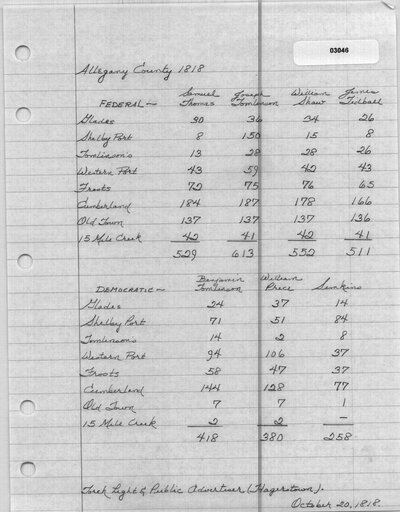 03046
Allegany County 1818
Samuel Joseph William James
FEDERAL — Thomas Tomlinson Shaw Tidball
Glades 90 36 34 26
Shelby Port 8 150 15 8
Tomlinson's 13 28 28 26
Western Port 43 59 42 43
Frosts 72 75 76 65
Cumberland 184 187 178 166
Old Town 137 137 137 136
15 Mile Creek 42 41 42 41
529 613 552 511
Benjamin William
DEMOCRATIC — Tomlinson Price Simkins
Glades 24 37 14
Shelby Port 71 51 84
Tomlinson's 14 2 8
Western Port 94 106 37
Frosts 58 47 37
Cumberland 144 128 77
Old Town 7 7 1
15 Mile Creek 2 2 —
418 380 258
Torch Light & Public Advertiser (Hagerstown).
October 20, 1818.